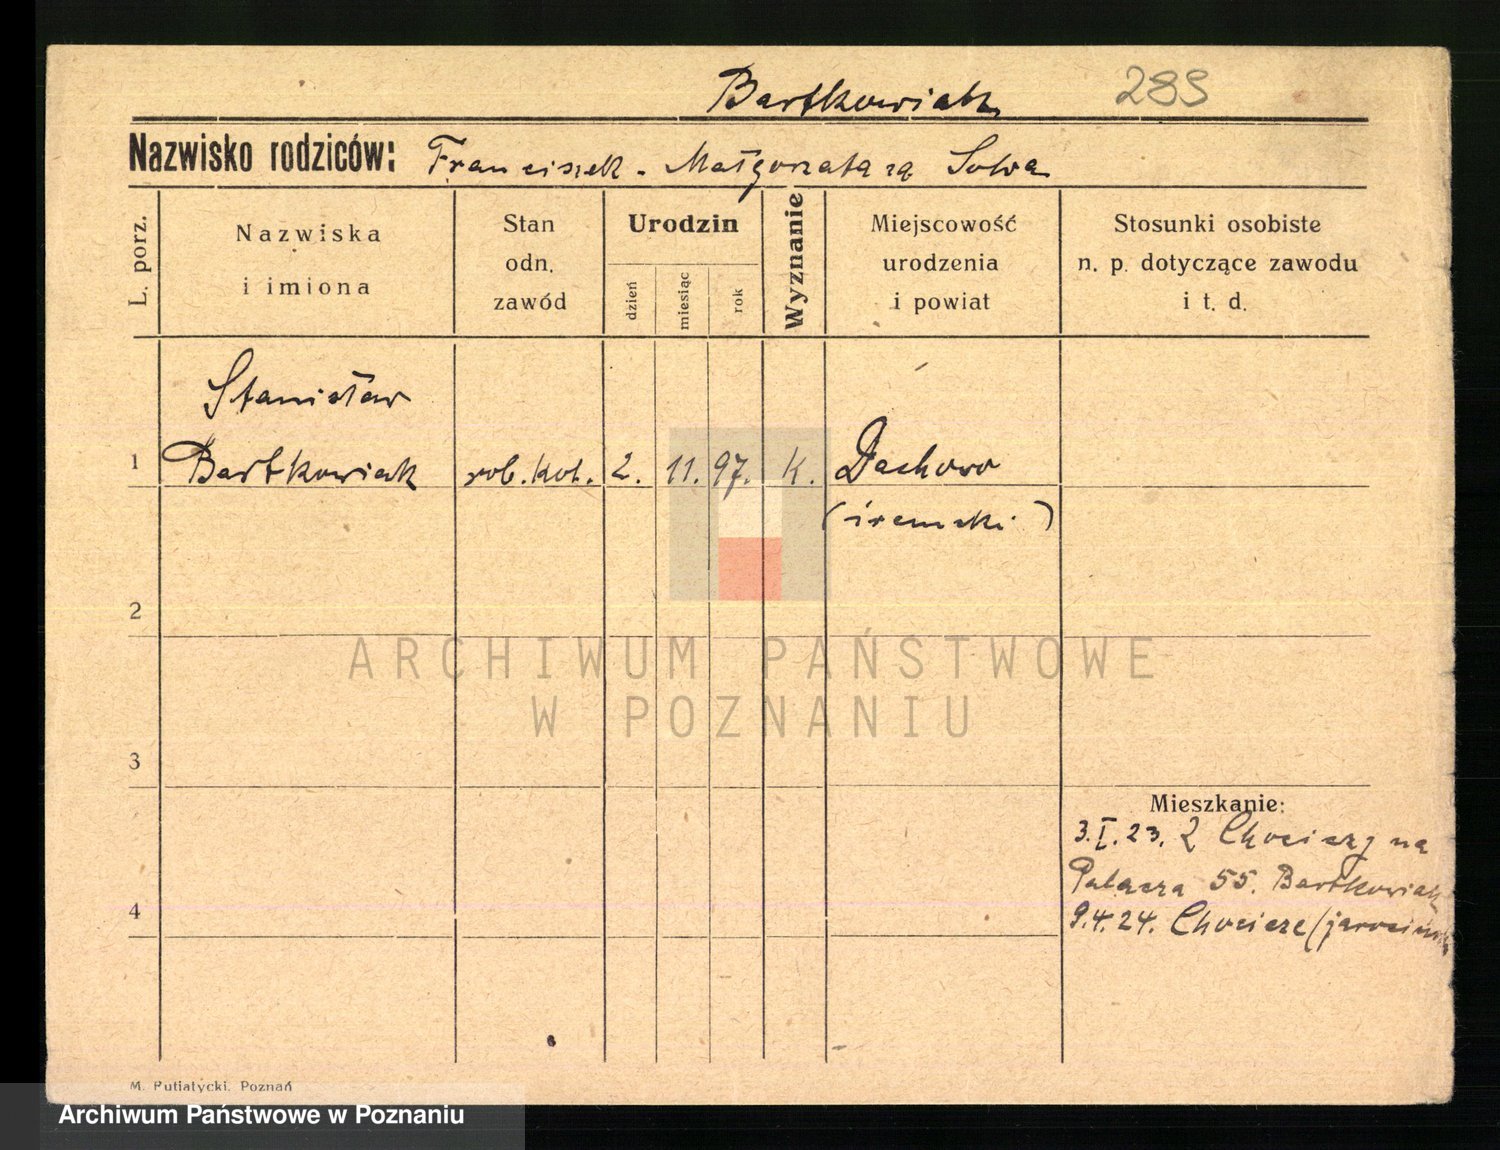 Bartkowiak 289
Nazwisko rodziców: Franciszek - Małgorzata zą
L. porz.
Nazwiska
i imiona
Stan
odn.
zawód
Urodzin
dzień
miesiąc
rok
Wyznanie
Miejscowość
urodzenia
i powiat
Stosunki osobiste
n. p. dotyczące zawodu
i t. d.
Stanisław
1 Bartkowiak rob. kol. 2. 11. 97. K. Dachowo
(śremski)
2
ARCHIWUM PAŃSTWOWE
W POZNANIU
3
Mieszkanie:
3.I.23. Z Chociczy na
Palacza 55. Bartkowiak
4 9.4.24. Chocicze (jarociński
M. Putiatycki. Poznań
Archiwum Państwowe w Poznaniu